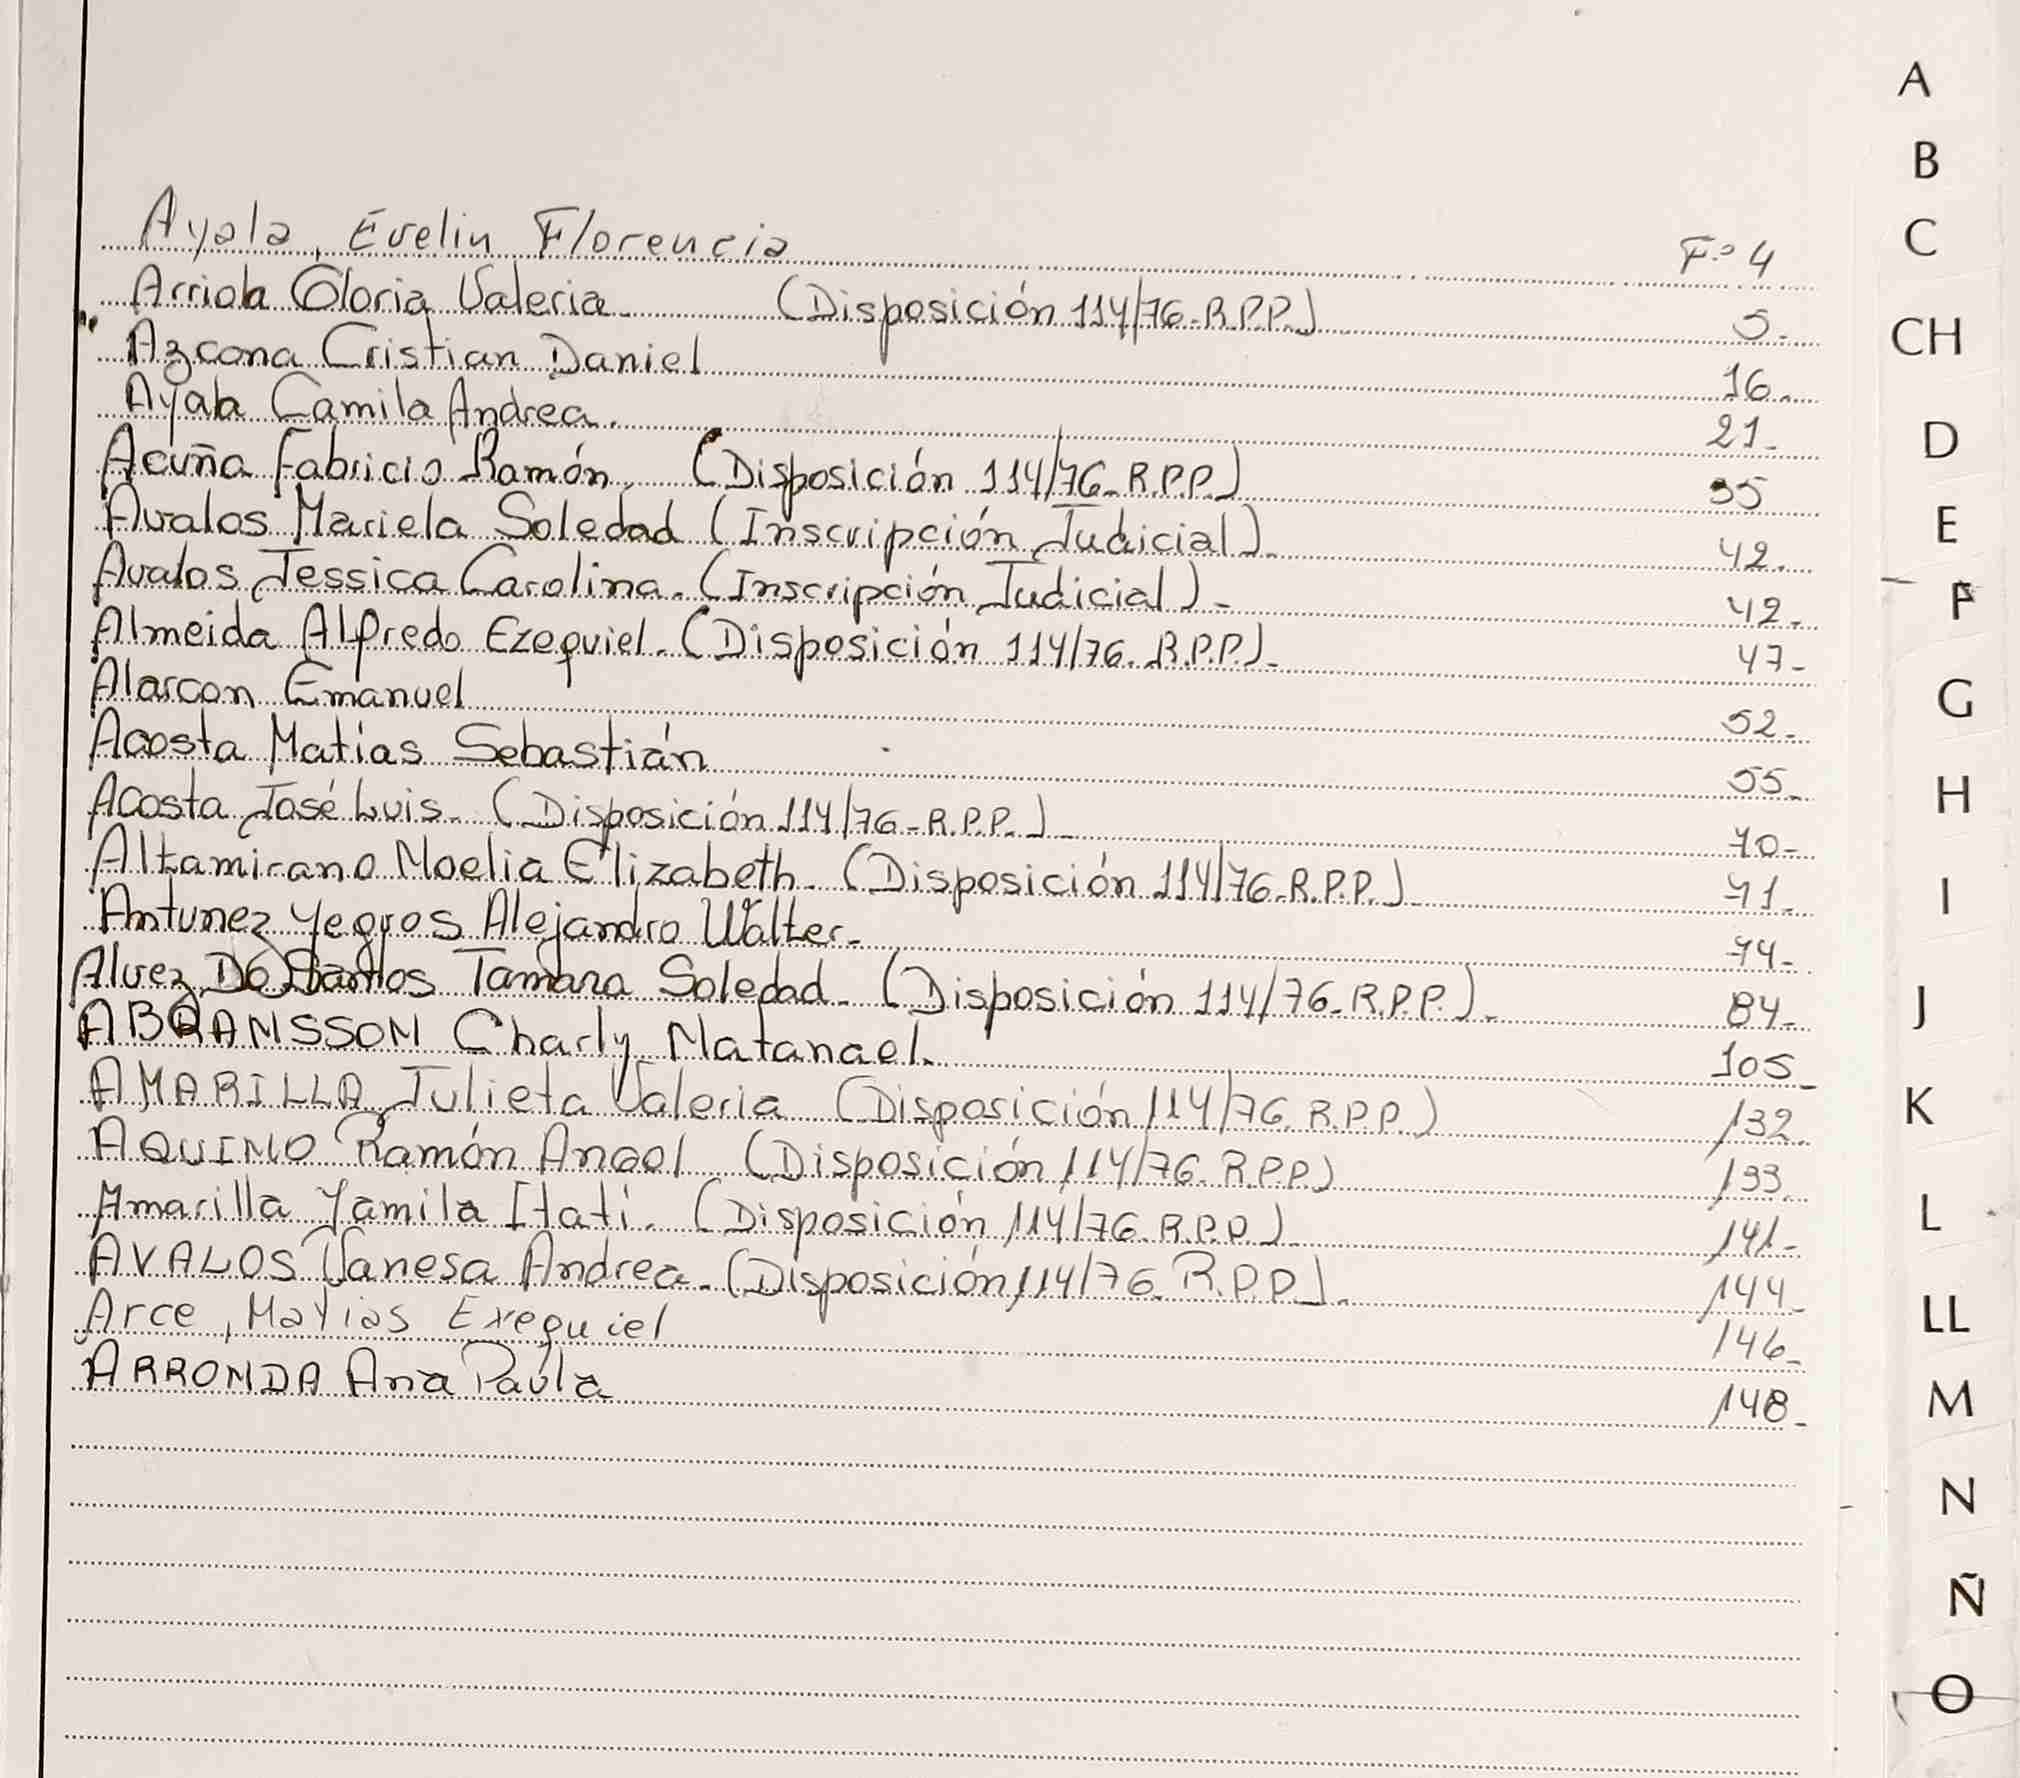 Ayala, Evelin Florencia F.º 4
Arriola Gloria Valeria (Disposición 114/76-R.P.P.) 5.-
Azcona Cristian Daniel 16.-
Ayala Camila Andrea. 21-
Acuña Fabricio Ramón, (Disposición 114/76-R.P.P.) 35
Avalos Mariela Soledad (Inscripción Judicial)- 42.
Avalos Jessica Carolina. (Inscripción Judicial)- 42.-
Almeida Alfredo Ezequiel. (Disposición 114/76. R.P.P.)- 47-
Alarcon Emanuel 52.-
Acosta Matias Sebastián 55-
Acosta José Luis- (Disposición 114/76-R.P.P.)- 70-
Altamirano Noelia Elizabeth. (Disposición 114/76-R.P.P.)- 71-
Antunez Yegros Alejandro Walter- 74-
Alvez Do Santos Tamara Soledad- (Disposición 114/76-R.P.P.)- 84-
ABRAMSSON Charly Natanael. 105-
AMARILLA Julieta Valeria (Disposición 114/76. R.P.P.) 132.
AQUINO Ramón Angel (Disposición 114/76. R.P.P.) 133.
Amarilla Yamila Itati. (Disposición 114/76. R.P.P.) 141-
AVALOS Vanesa Andrea. (Disposición 114/76. R.P.P.)- 144-
Arce, Matias Exequiel 146-
ARRONDA Ana Paula 148-
A
B
C
CH
D
E
F
G
H
I
J
K
L
LL
M
N
Ñ
O